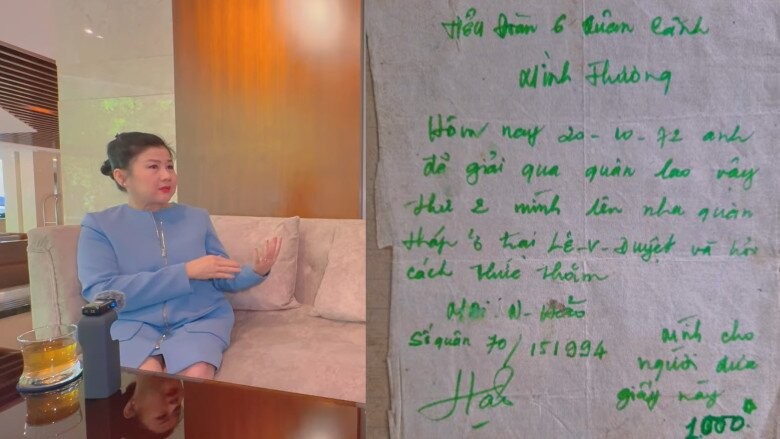 Tiểu Đoàn 6 Quân Cảnh
Mình Thương
Hôm nay 20-10-72 anh
đã giải qua quân lao vậy
thứ 2 mình lên nha quân
pháp ở trại Lê-V-Duyệt và hỏi
cách thức thăm
Số quân 70/151994
mình cho
người đưa
giấy này
1000đ